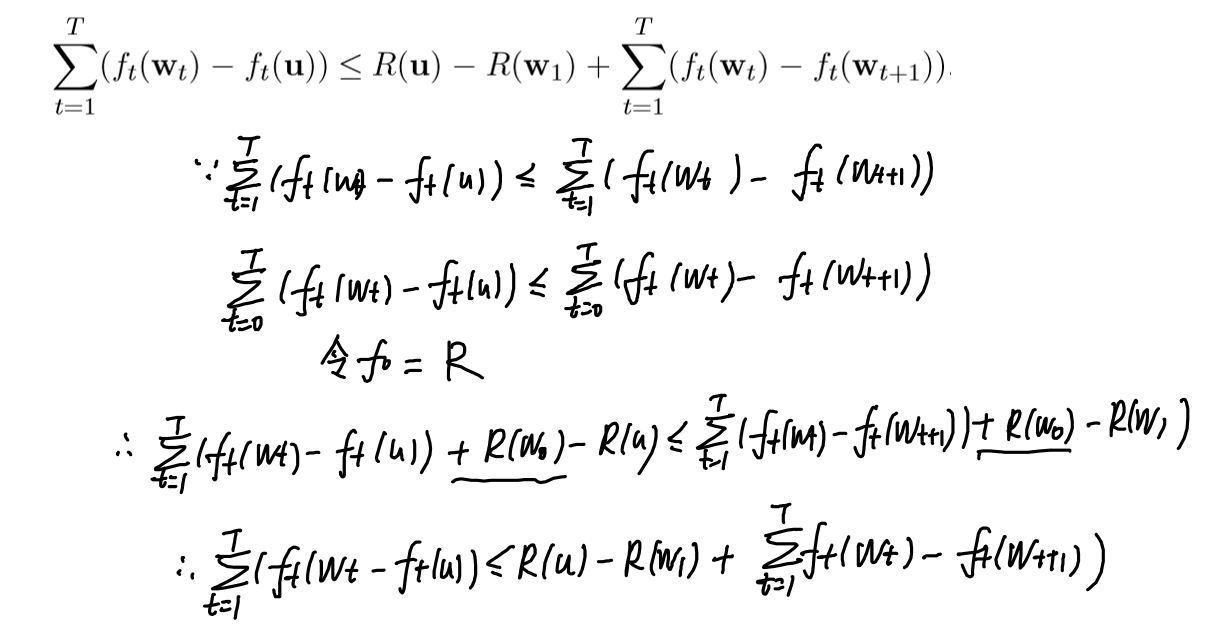 $\sum_{t=1}^{T}(f_t(\mathbf{w}_t) - f_t(\mathbf{u})) \leq R(\mathbf{u}) - R(\mathbf{w}_1) + \sum_{t=1}^{T}(f_t(\mathbf{w}_t) - f_t(\mathbf{w}_{t+1})).$
$\because \sum_{t=1}^{T}(f_t(w_t) - f_t(u)) \leq \sum_{t=1}^{T}(f_t(w_t) - f_t(w_{t+1}))$
$\sum_{t=0}^{T}(f_t(w_t) - f_t(u)) \leq \sum_{t=0}^{T}(f_t(w_t) - f_t(w_{t+1}))$
令 $f_0 = R$
$\therefore \sum_{t=1}^{T}(f_t(w_t) - f_t(u)) + R(w_0) - R(u) \leq \sum_{t=1}^{T}(f_t(w_t) - f_t(w_{t+1})) + R(w_0) - R(w_1)$
$\therefore \sum_{t=1}^{T}(f_t(w_t - f_t(u)) \leq R(u) - R(w_1) + \sum_{t=1}^{T} f_t(w_t) - f_t(w_{t+1}))$